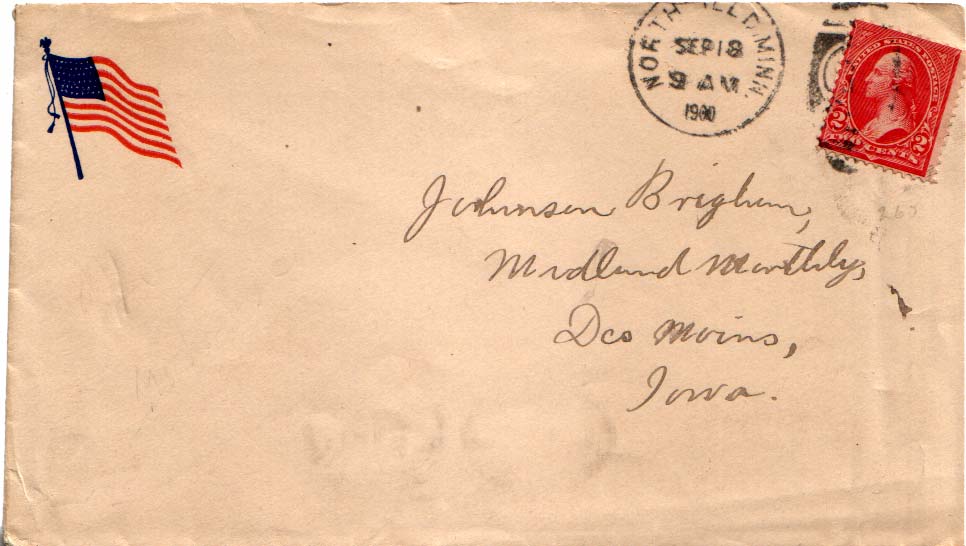 NORTHFIELD, MINN.
SEP 18
9 AM
1900
UNITED STATES POSTAGE
2 TWO CENTS 2
Johnson Brigham,
Midland Monthly,
Des Moins,
Iowa.